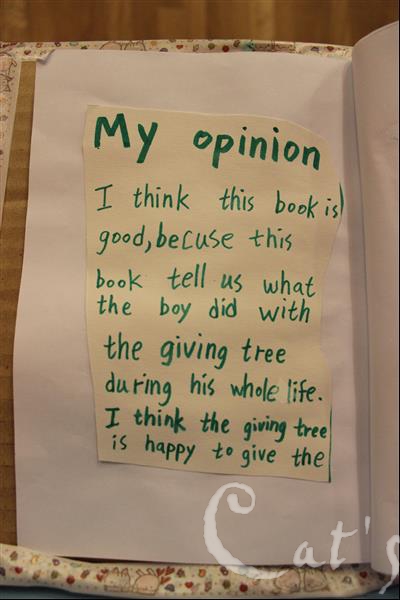 My opinion
I think this book is
good,becuse this
book tell us what
the boy did with
the giving tree
during his whole life.
I think the giving tree
is happy to give the
Cat's